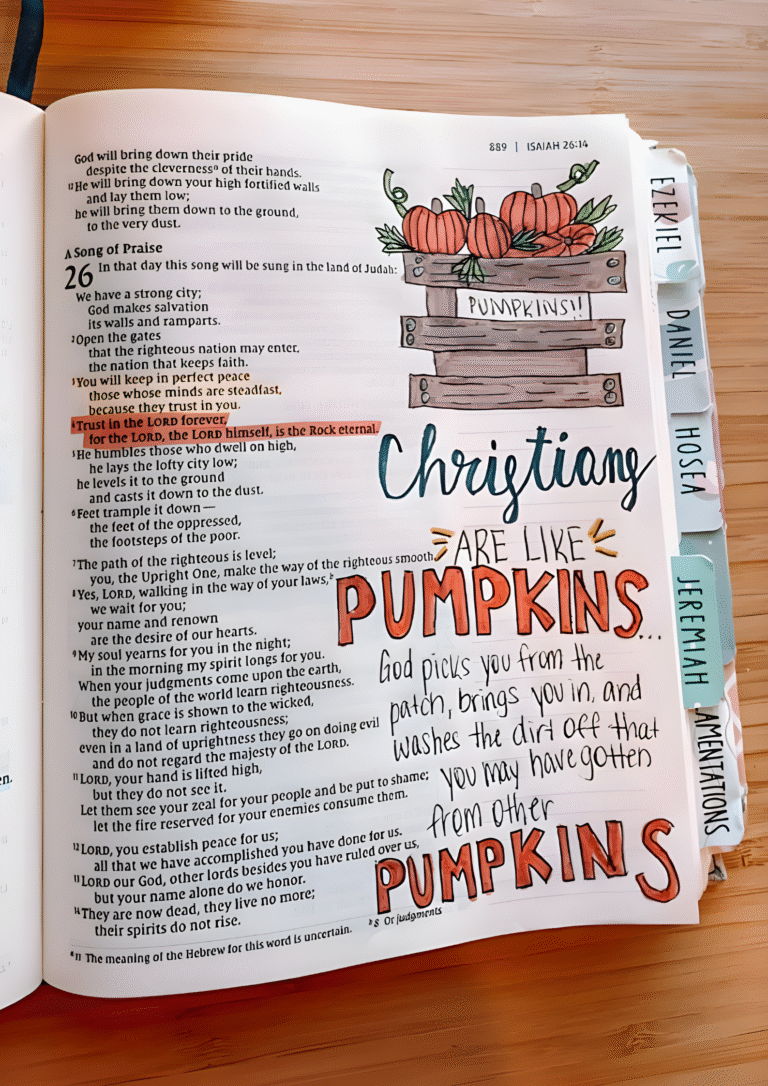 889 | ISAIAH 26:14
God will bring down their pride
despite the cleverness ⁿ of their hands.
¹²He will bring down your high fortified walls
and lay them low;
he will bring them down to the ground,
to the very dust.
A Song of Praise
26 In that day this song will be sung in the land of Judah:
We have a strong city;
God makes salvation
its walls and ramparts.
²Open the gates
that the righteous nation may enter,
the nation that keeps faith.
³You will keep in perfect peace
those whose minds are steadfast,
because they trust in you.
⁴Trust in the LORD forever,
for the LORD, the LORD himself, is the Rock eternal.
⁵He humbles those who dwell on high,
he lays the lofty city low;
he levels it to the ground
and casts it down to the dust.
⁶Feet trample it down—
the feet of the oppressed,
the footsteps of the poor.
⁷The path of the righteous is level;
you, the Upright One, make the way of the righteous smooth.
⁸Yes, LORD, walking in the way of your laws,ᵇ
we wait for you;
your name and renown
are the desire of our hearts.
⁹My soul yearns for you in the night;
in the morning my spirit longs for you.
When your judgments come upon the earth,
the people of the world learn righteousness.
¹⁰But when grace is shown to the wicked,
they do not learn righteousness;
even in a land of uprightness they go on doing evil
and do not regard the majesty of the LORD.
¹¹LORD, your hand is lifted high,
but they do not see it.
Let them see your zeal for your people and be put to shame;
let the fire reserved for your enemies consume them.
¹²LORD, you establish peace for us;
all that we have accomplished you have done for us.
¹³LORD our God, other lords besides you have ruled over us,
but your name alone do we honor.
¹⁴They are now dead, they live no more;
their spirits do not rise.
ᵃ 11 The meaning of the Hebrew for this word is uncertain.
ᵇ 8 Or judgments
PUMPKINS!!
Christians
ARE LIKE
PUMPKINS...
God picks you from the
patch, brings you in, and
washes the dirt off that
you may have gotten
from other
PUMPKINS
EZEKIEL
DANIEL
HOSEA
JEREMIAH
AMENTATIONS
en.